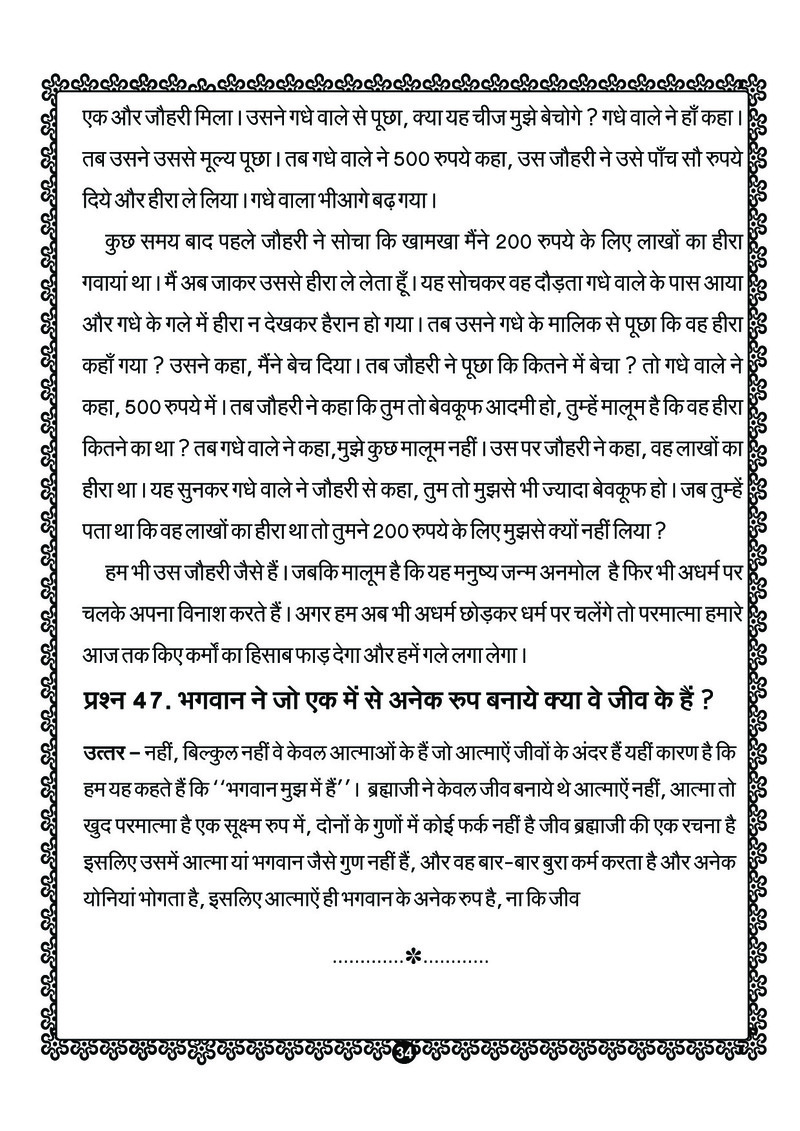 एक और जौहरी मिला । उसने गधे वाले से पूछा, क्या यह चीज मुझे बेचोगे ? गधे वाले ने हाँ कहा ।
तब उसने उससे मूल्य पूछा । तब गधे वाले ने 500 रुपये कहा, उस जौहरी ने उसे पाँच सौ रुपये
दिये और हीरा ले लिया । गधे वाला भीआगे बढ़ गया ।
कुछ समय बाद पहले जौहरी ने सोचा कि खामखा मैंने 200 रुपये के लिए लाखों का हीरा
गवायां था । मैं अब जाकर उससे हीरा ले लेता हूँ । यह सोचकर वह दौड़ता गधे वाले के पास आया
और गधे के गले में हीरा न देखकर हैरान हो गया । तब उसने गधे के मालिक से पूछा कि वह हीरा
कहाँ गया ? उसने कहा, मैंने बेच दिया । तब जौहरी ने पूछा कि कितने में बेचा ? तो गधे वाले ने
कहा, 500 रुपये में । तब जौहरी ने कहा कि तुम तो बेवकूफ आदमी हो, तुम्हें मालूम है कि वह हीरा
कितने का था ? तब गधे वाले ने कहा,मुझे कुछ मालूम नहीं । उस पर जौहरी ने कहा, वह लाखों का
हीरा था । यह सुनकर गधे वाले ने जौहरी से कहा, तुम तो मुझसे भी ज्यादा बेवकूफ हो । जब तुम्हें
पता था कि वह लाखों का हीरा था तो तुमने 200 रुपये के लिए मुझसे क्यों नहीं लिया ?
हम भी उस जौहरी जैसे हैं । जबकि मालूम है कि यह मनुष्य जन्म अनमोल है फिर भी अधर्म पर
चलके अपना विनाश करते हैं । अगर हम अब भी अधर्म छोड़कर धर्म पर चलेंगे तो परमात्मा हमारे
आज तक किए कर्मों का हिसाब फाड़ देगा और हमें गले लगा लेगा ।
प्रश्न 47. भगवान ने जो एक में से अनेक रुप बनाये क्या वे जीव के हैं ?
उत्तर – नहीं, बिल्कुल नहीं वे केवल आत्माओं के हैं जो आत्माऐं जीवों के अंदर हैं यहीं कारण है कि
हम यह कहते हैं कि ‘‘भगवान मुझ में हैं’’ । ब्रह्माजी ने केवल जीव बनाये थे आत्माऐं नहीं, आत्मा तो
खुद परमात्मा है एक सूक्ष्म रुप में, दोनों के गुणों में कोई फर्क नहीं है जीव ब्रह्माजी की एक रचना है
इसलिए उसमें आत्मा यां भगवान जैसे गुण नहीं हैं, और वह बार-बार बुरा कर्म करता है और अनेक
योनियां भोगता है, इसलिए आत्माऐं ही भगवान के अनेक रुप है, ना कि जीव
.............✽............
34